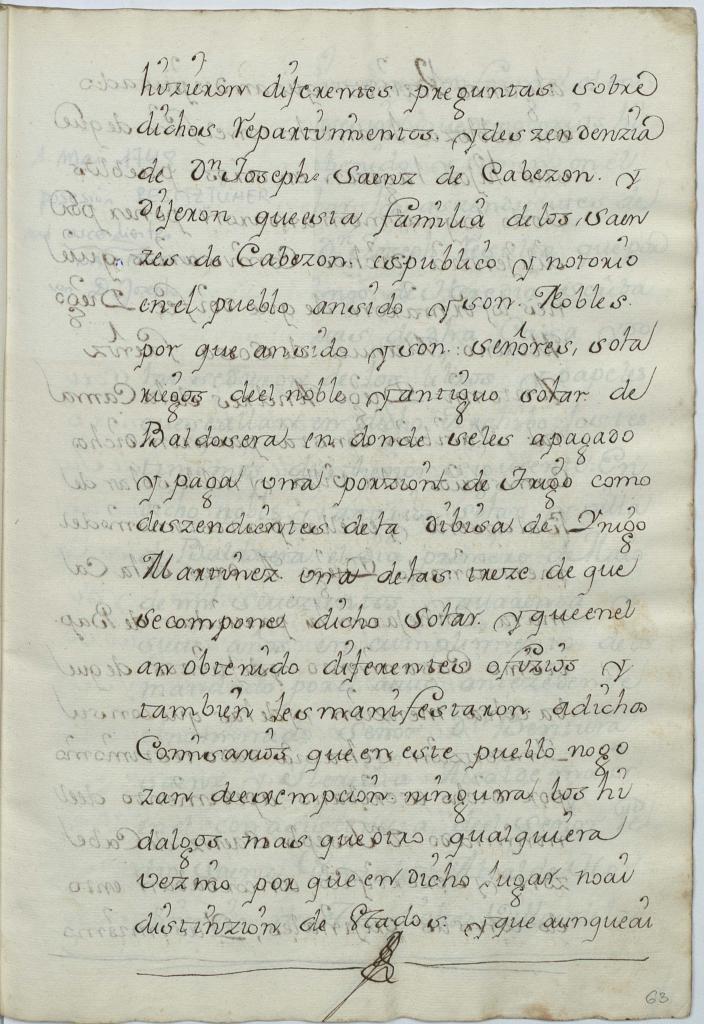 hizieron diferentes preguntas sobre
dichos repartimientos. y deszendenzia
de Dn Joseph Saenz de Cabezon. y
Dijeron que esta familia delos, saen
zes de Cabezon. es publico y notorio
en el pueblo an sido y son. Nobles.
por que an sido y son. señores, sola
riegos de el noble y antiguo solar de
Baldosera en donde seles a pagado
y paga una porzion de Trigo como
deszendientes dela dibisa de Ynigo
Martinez una delas treze de que
secompone dicho Solar. y que enel
an obtenido diferentes ofizios y
tambien les manifestaron. adichos
Comisarios que en este pueblo no go
zan de exempcion ninguna los hi
dalgos mas que otro qualquiera
vezino por que en Dicho Lugar no ai
distinzion de Estados. y que aunque ai
63